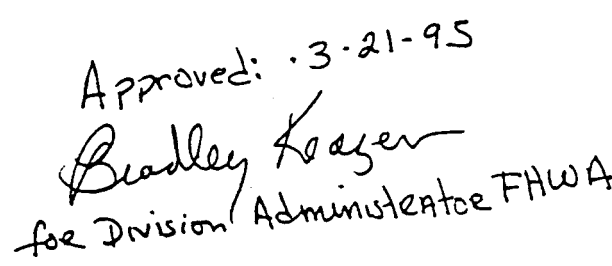 Approved: 3-21-95
Bradley Keazer
for Division Administrator FHWA